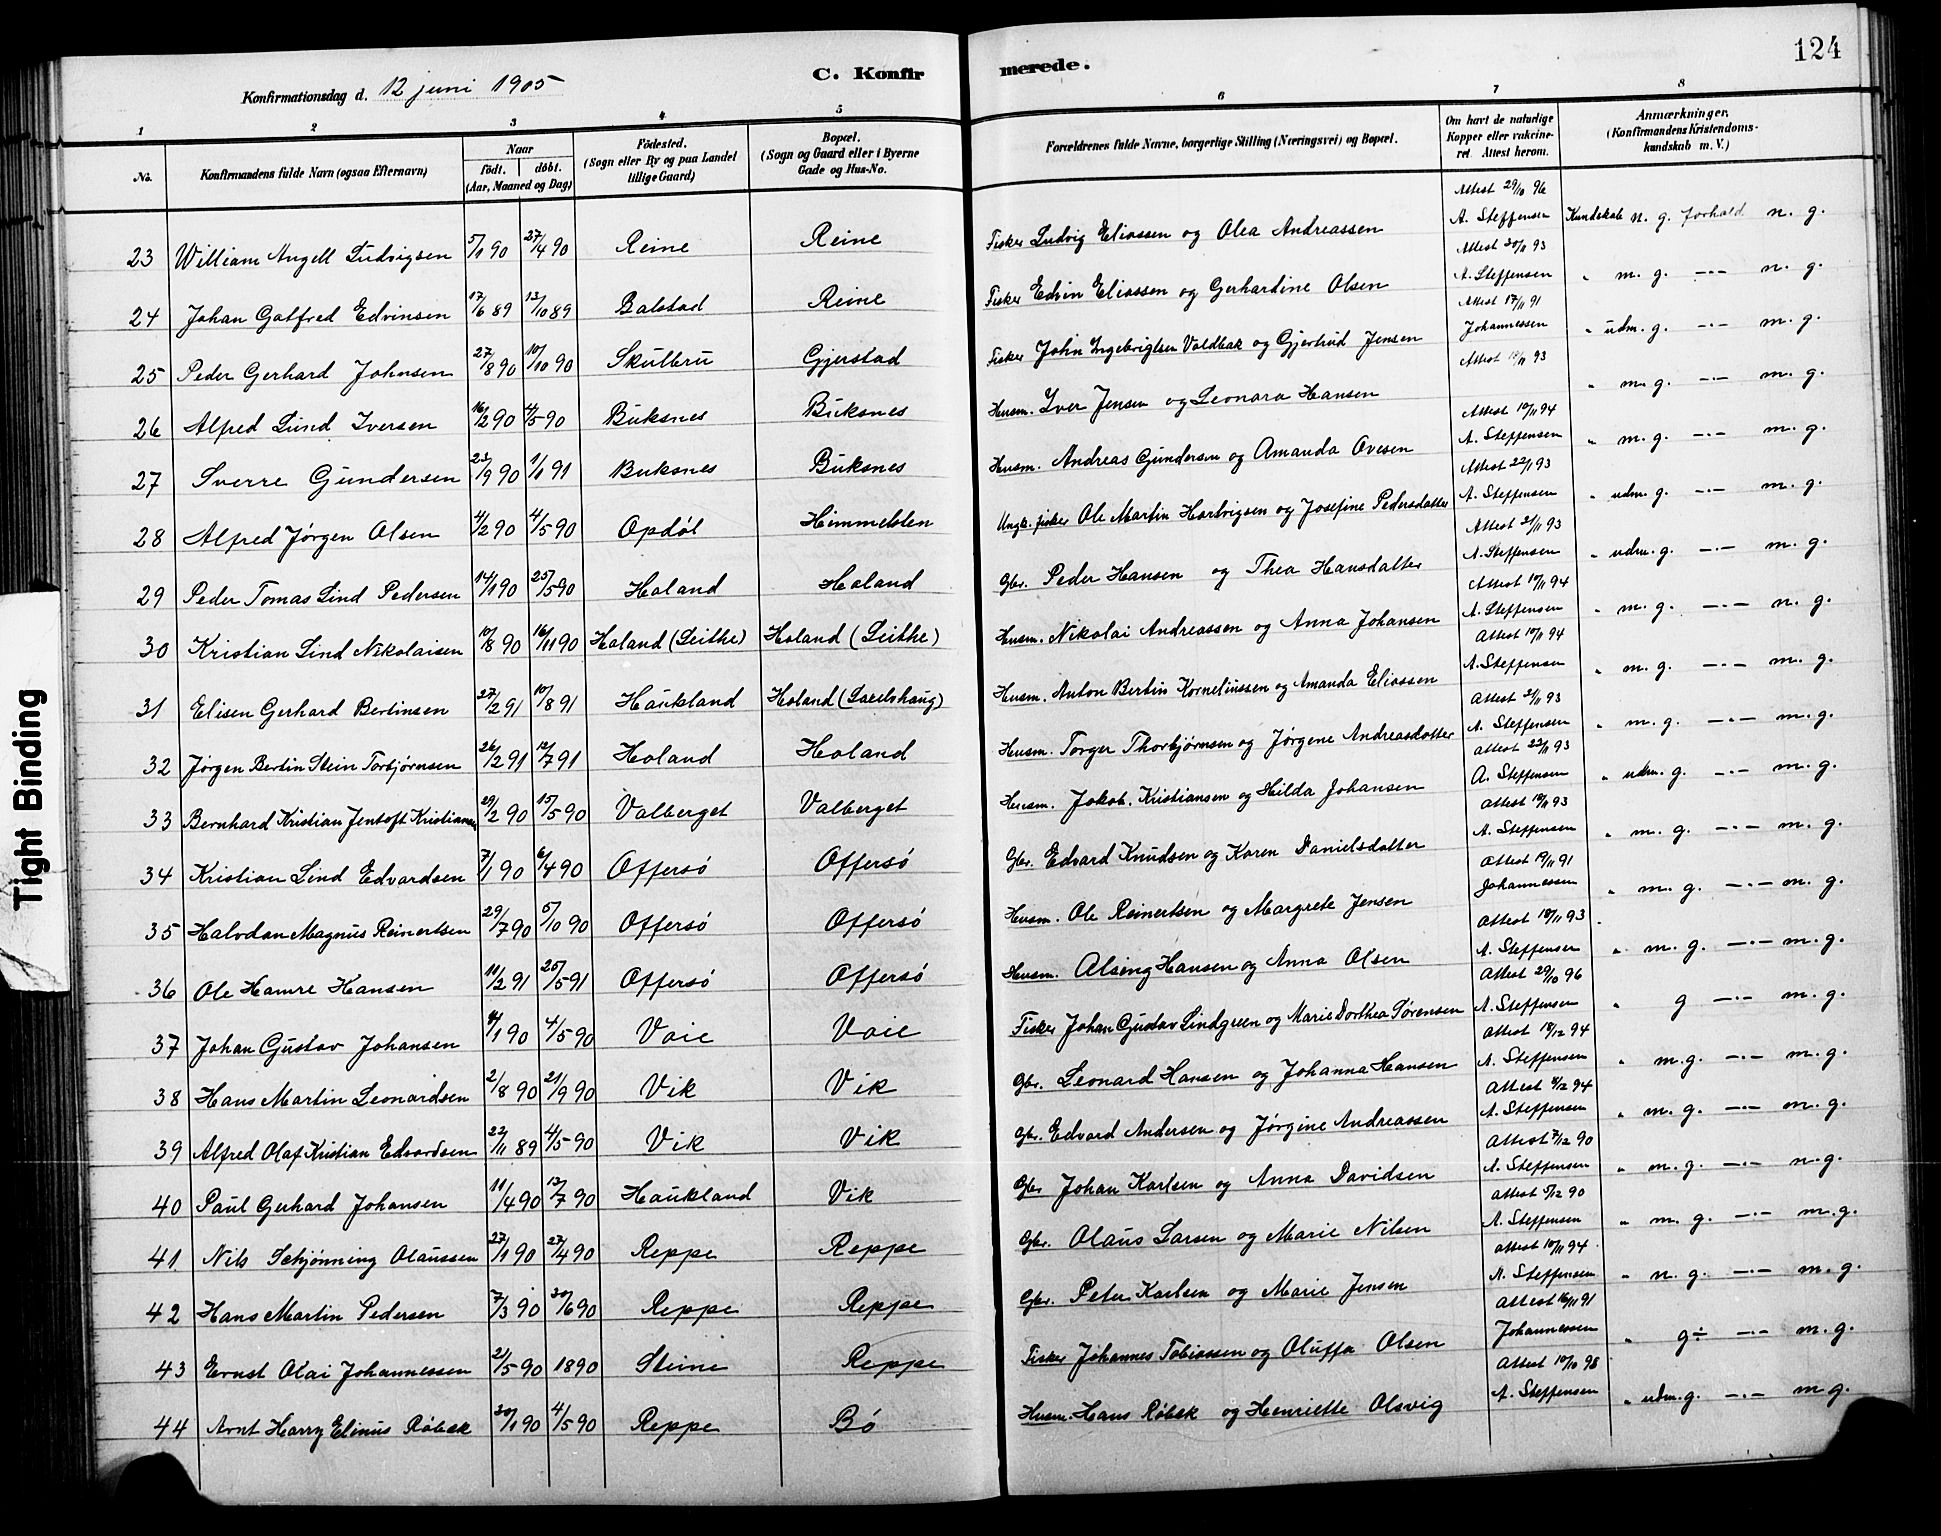 124
C. Konfirmerede.
Konfirmationsdag d. 12 juni 1905
1 2 3 4 5 6 7 8
No. Konfirmandens fulde Navn (ogsaa Efternavn) Naar født. døbt. (Aar, Maaned og Dag) Fødested. (Sogn eller By og paa Landet tillige Gaard) Bopæl. (Sogn og Gaard eller i Byerne Gade og Hus-No. Forældrenes fulde Navne, borgerlige Stilling (Næringsvei) og Bopæl. Om havt de naturlige Kopper eller vakcineret. Attest herom. Anmærkninger. (Konfirmandens Kristendomskundskab m. V.)
23 William Angell Ludvigsen 5/1 90 27/4 90 Reine Reine Fisker Ludvig Eliassen og Olea Andreassen Attest 29/10 96 A. Steffensen Kundskab n. g. forhold n. g.
24 Johan Gotfred Edvinsen 17/6 89 13/10 89 Balstad Reine Fisker Edvin Eliassen og Gerhardine Olsen Attest 20/11 93 A. Steffensen " m. g. -"- n. g.
25 Peder Gerhard Johnsen 27/8 90 10/10 90 Skulbru Gjerstad Fisker John Ingebrigtsen Voldbak og Gjertrud Jensen Attest 17/11 91 Johannessen " udm. g. -"- m. g.
26 Alfred Lund Iversen 16/2 90 4/5 90 Buksnes Buksnes Husm. Iver Jensen og Leonara Hansen Attest 18/11 93 " m. g. -"- m. g.
27 Sverre Gundersen 23/9 90 1/1 91 Buksnes Buksnes Husm. Andreas Gundersen og Amanda Ovesen Attest 10/11 94 A. Steffensen " m. g. -"- m. g.
28 Alfred Jørgen Olsen 4/2 90 4/5 90 Opdøl Himmelsten Ungk. fisker Ole Martin Hartvigsen og Josefine Pedersdatter Attest 22/11 93 A. Steffensen " udm. g. -"- m. g.
29 Peder Tomas Lind Pedersen 14/1 90 25/5 90 Holand Holand Gbr. Peder Hansen og Thea Hansdatter Attest 21/11 93 A. Steffensen " udm. g. -"- m. g.
30 Kristian Lind Nikolaisen 10/8 90 16/11 90 Holand (Leithe) Holand (Leithe) Husm. Nikolai Andreassen og Anna Johansen Attest 10/11 94 A. Steffensen " m. g. -"- n. g.
31 Elisen Gerhard Bertinsen 27/2 91 10/8 91 Haukland Holand Husm. Anton Bertin Korneliussen og Amanda Eliassen Attest 10/11 94 A. Steffensen " m. g. -"- m. g.
32 Jørgen Bertin Stein Torbjørnsen 26/2 91 12/7 91 Holand Holand Husm. Torger Thorbjørnsen og Jørgene Andreasdatter Attest 21/11 93 A. Steffensen " m. g. -"- m. g.
33 Bernhard Kristian Jentoft Kristiansen 29/2 90 15/5 90 Valberget Valberget Husm. Jakob. Kristiansen og Hilda Johansen Attest 22/11 93 A. Steffensen " udm. g. -"- m. g.
34 Kristian Lind Edvardsen 7/1 90 6/4 90 Offersø Offersø Gbr. Edvard Knudsen og Karen Danielsdatter Attest 18/11 93 A. Steffensen " m. g. -"- m. g.
35 Halvdan Magnus Reinertsen 29/7 90 5/10 90 Offersø Offersø Husm. Ole Reinertsen og Margrete Jensen Attest 19/11 91 Johannessen " m. g. -"- m. g.
36 Ole Hamre Hansen 11/2 91 25/5 91 Offersø Offersø Husm. Alsing Hansen og Anna Olsen Attest 18/11 93 A. Steffensen " m. g. -"- m. g.
37 Johan Gustav Johansen 4/1 90 4/5 90 Voie Voie Fisker Johan Gustav Lindgreen og Marie Dorthea Sørensen Attest 29/10 96 A. Steffensen " g -"- m. g.
38 Hans Martin Leonardsen 2/8 90 21/9 90 Vik Vik Gbr. Leonard Hansen og Johanna Hansen Attest 18/12 94 A. Steffensen " m. g. -"- m. g.
39 Alfred Olaf Kristian Edvardsen 22/11 89 4/5 90 Vik Vik Gbr. Edvard Andersen og Jørgine Andreassen Attest 8/12 94 A. Steffensen " m. g. -"- m. g.
40 Paul Gerhard Johansen 11/4 90 13/7 90 Haukland Vik Gbr Johan Karlsen og Anna Davidsen Attest 7/12 90 A. Steffensen " m. g. -"- n. g.
41 Nils Schjønning Olaussen 27/1 90 27/4 90 Reppe Reppe Gbr. Olaus Larsen og Marie Nilsen Attest 5/12 90 A. Steffensen " m. g. -"- m. g.
42 Hans Martin Pedersen 7/3 90 30/6 90 Reppe Reppe Gbr. Peter Karlsen og Marie Jensen Attest 10/11 94 A. Steffensen " n. g. -"- m. g.
43 Ernst Olai Johannessen 2/5 90 1890 Steine Reppe Fisker Johannes Tobiassen og Oluffa Olsen Attest 16/11 91 Johannessen " g÷ -"- m. g.
44 Arnt Harry Elinus Røbek 30/1 90 4/5 90 Reppe Bø Husm. Hans Røbek og Henriette Olsvig Attest 10/10 98 A. Steffensen " udm. g. -"- m. g.
Tight Binding